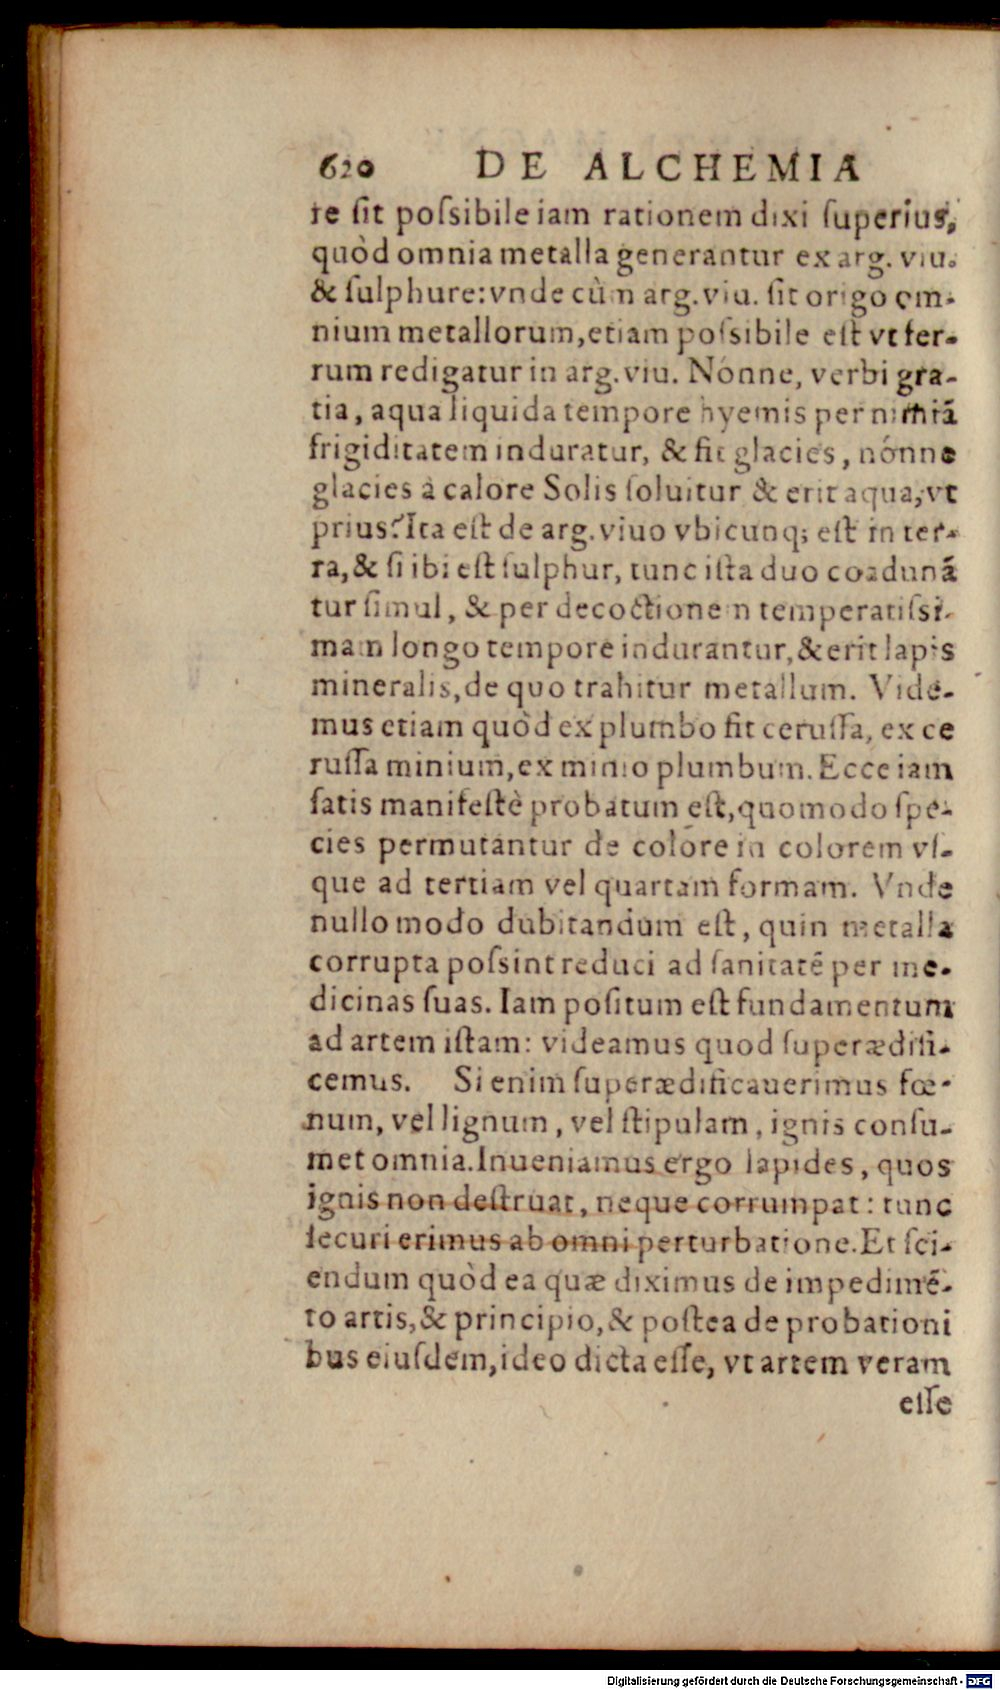 620 DE ALCHEMIA
re ſit poſsibile iam rationem dixi ſuperius,
quòd omnia metalla generantur ex arg. viu.
& ſulphure: vnde cùm arg. viu. ſit origo om-
nium metallorum, etiam poſsibile eſt vt fer-
rum redigatur in arg. viu. Nónne, verbi gra-
tia, aqua liquida tempore hyemis per nimiã
frigiditatem induratur, & fit glacies, nónne
glacies à calore Solis ſoluitur & erit aqua, vt
prius? Ita eſt de arg. viuo vbicunq; eſt in ter-
ra, & ſi ibi eſt ſulphur, tunc iſta duo coadunã
tur ſimul, & per decoctionem temperatiſsi-
mam longo tempore indurantur, & erit lapis
mineralis, de quo trahitur metallum. Vide-
mus etiam quòd ex plumbo fit ceruſſa, ex ce
ruſſa minium, ex minio plumbum. Ecce iam
ſatis manifeſtè probatum eſt, quomodo ſpe-
cies permutantur de colore in colorem vſ-
que ad tertiam vel quartam formam. Vnde
nullo modo dubitandum eſt, quin metalla
corrupta poſsint reduci ad ſanitatẽ per me-
dicinas ſuas. Iam poſitum eſt fundamentum
ad artem iſtam: videamus quod ſuperædifi-
cemus. Si enim ſuperædificauerimus fœ-
num, vel lignum, vel ſtipulam, ignis conſu-
met omnia. Inueniamus ergo lapides, quos
ignis non deſtruat, neque corrumpat: tunc
ſecuri erimus ab omni perturbatione. Et ſci-
endum quòd ea quæ diximus de impedimẽ-
to artis, & principio, & poſtea de probationi
bus eiuſdem, ideo dicta eſſe, vt artem veram
eſſe
Digitalisierung gefördert durch die Deutsche Forschungsgemeinschaft - DFG